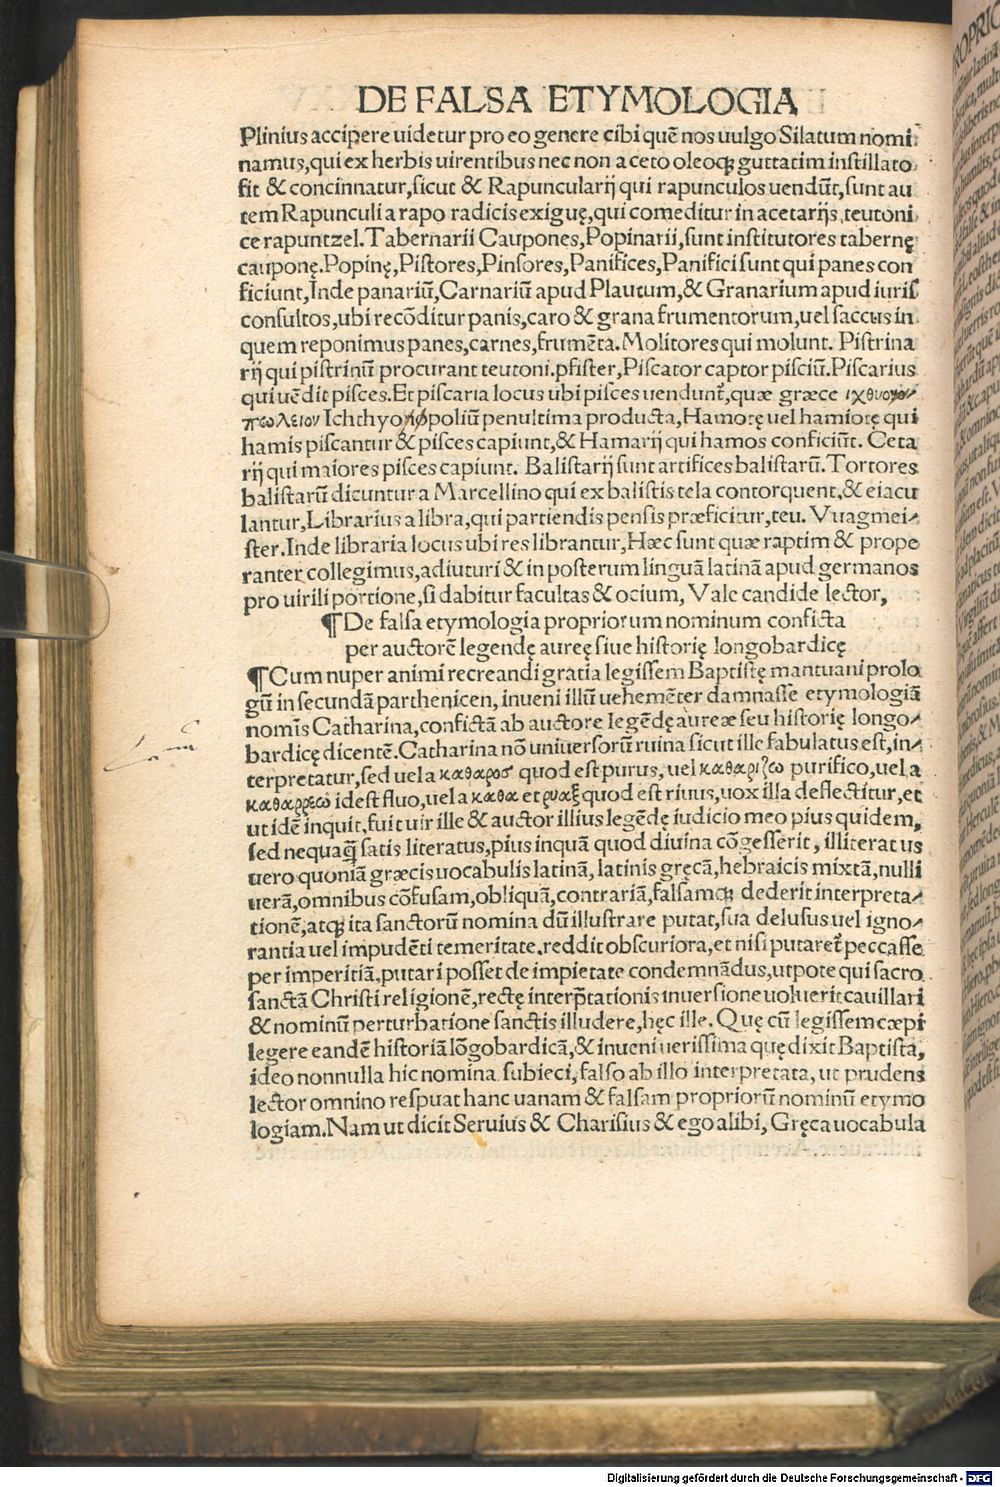 DE FALSA ETYMOLOGIA
Plinius accipere uidetur pro eo genere cibi quē nos uulgo Silatum nomi
namus, qui ex herbis uirentibus nec non aceto oleoq; guttatim instillato
fit & concinnatur, sicut & Rapuncularij qui rapunculos uendūt, sunt au
tem Rapunculi a rapo radicis exiguę, qui comeditur in acetarijs, teutoni
ce rapuntzel. Tabernarii Caupones, Popinarii, sunt institutores tabernę
cauponę. Popinę, Pistores, Pinsores, Panifices, Panifici sunt qui panes con
ficiunt, Inde panariū, Carnariū apud Plautum, & Granarium apud iuris
consultos, ubi recōditur panis, caro & grana frumentorum, uel saccus in
quem reponimus panes, carnes, frumēta. Molitores qui molunt. Pistrina
rij qui pistrinū procurant teutoni. pfister, Piscator captor pisciū. Piscarius
qui uēdit pisces. Et piscaria locus ubi pisces uendunt̃, quæ græce ιχθυο
πωλειον Ichthyopoliū penultima producta, Hamotę uel hamiotę qui
hamis piscantur & pisces capiunt, & Hamarij qui hamos conficiūt. Ceta
rij qui maiores pisces capiunt. Balistarij sunt artifices balistarū. Tortores
balistarū dicuntur a Marcellino qui ex balistis tela contorquent, & eiacu
lantur, Librarius a libra, qui partiendis pensis præficitur, teu. Vuagmei-
ster. Inde libraria locus ubi res librantur, Hæc sunt quæ raptim & prope
ranter collegimus, adiuturi & in posterum linguā latinā apud germanos
pro uirili portione, si dabitur facultas & ocium, Vale candide lector,
¶ De falsa etymologia propriorum nominum conficta
per auctorē legendę aureę siue historię longobardicę
¶ Cum nuper animi recreandi gratia legissem Baptistę mantuani prolo
gū in secundā parthenicen, inueni illū uehemēter damnasse etymologiā
nomīs Catharina, confictā ab auctore legēdę aureæ seu historię longo-
bardicę dicentē. Catharina nō uniuersorū ruina sicut ille fabulatus est, in-
terpretatur, sed uel a καθαρος quod est purus, uel καθαριζω purifico, uel a
καθαρρεω id est fluo, uel a καθα et ρυαξ quod est riuus, uox illa deflectitur, et
ut idē inquit, fuit uir ille & auctor illius legēdę iudicio meo pius quidem,
sed nequaq̄ satis literatus, pius inquā quod diuina cōgesserit, illiteratus
uero quoniā græcis uocabulis latinā, latinis gręcā, hebraicis mixtā, nulli
uerā, omnibus cōfusam, obliquā, contrariā, falsamq; dederit interpreta-
tionē, atq; ita sanctorū nomina dū illustrare putat, sua delusus uel igno-
rantia uel impudēti temeritate. reddit obscuriora, et nisi putaret̃ peccasse
per imperitiā, putari posset de impietate condemnādus, utpote qui sacro
sanctā Christi religionē, rectę interp̄tationis inuersione uoluerit cauillari
& nominū perturbatione sanctis illudere, hęc ille. Quę cū legissem cœpi
legere eandē historiā lōgobardicā, & inueni uerissima quę dixit Baptista,
ideo nonnulla hic nomina subieci, falso ab illo interpretata, ut prudens
lector omnino respuat hanc uanam & falsam propriorū nominū etymo
logiam. Nam ut dicit Seruius & Charisius & ego alibi, Gręca uocabula
Digitalisierung gefördert durch die Deutsche Forschungsgemeinschaft - DFG